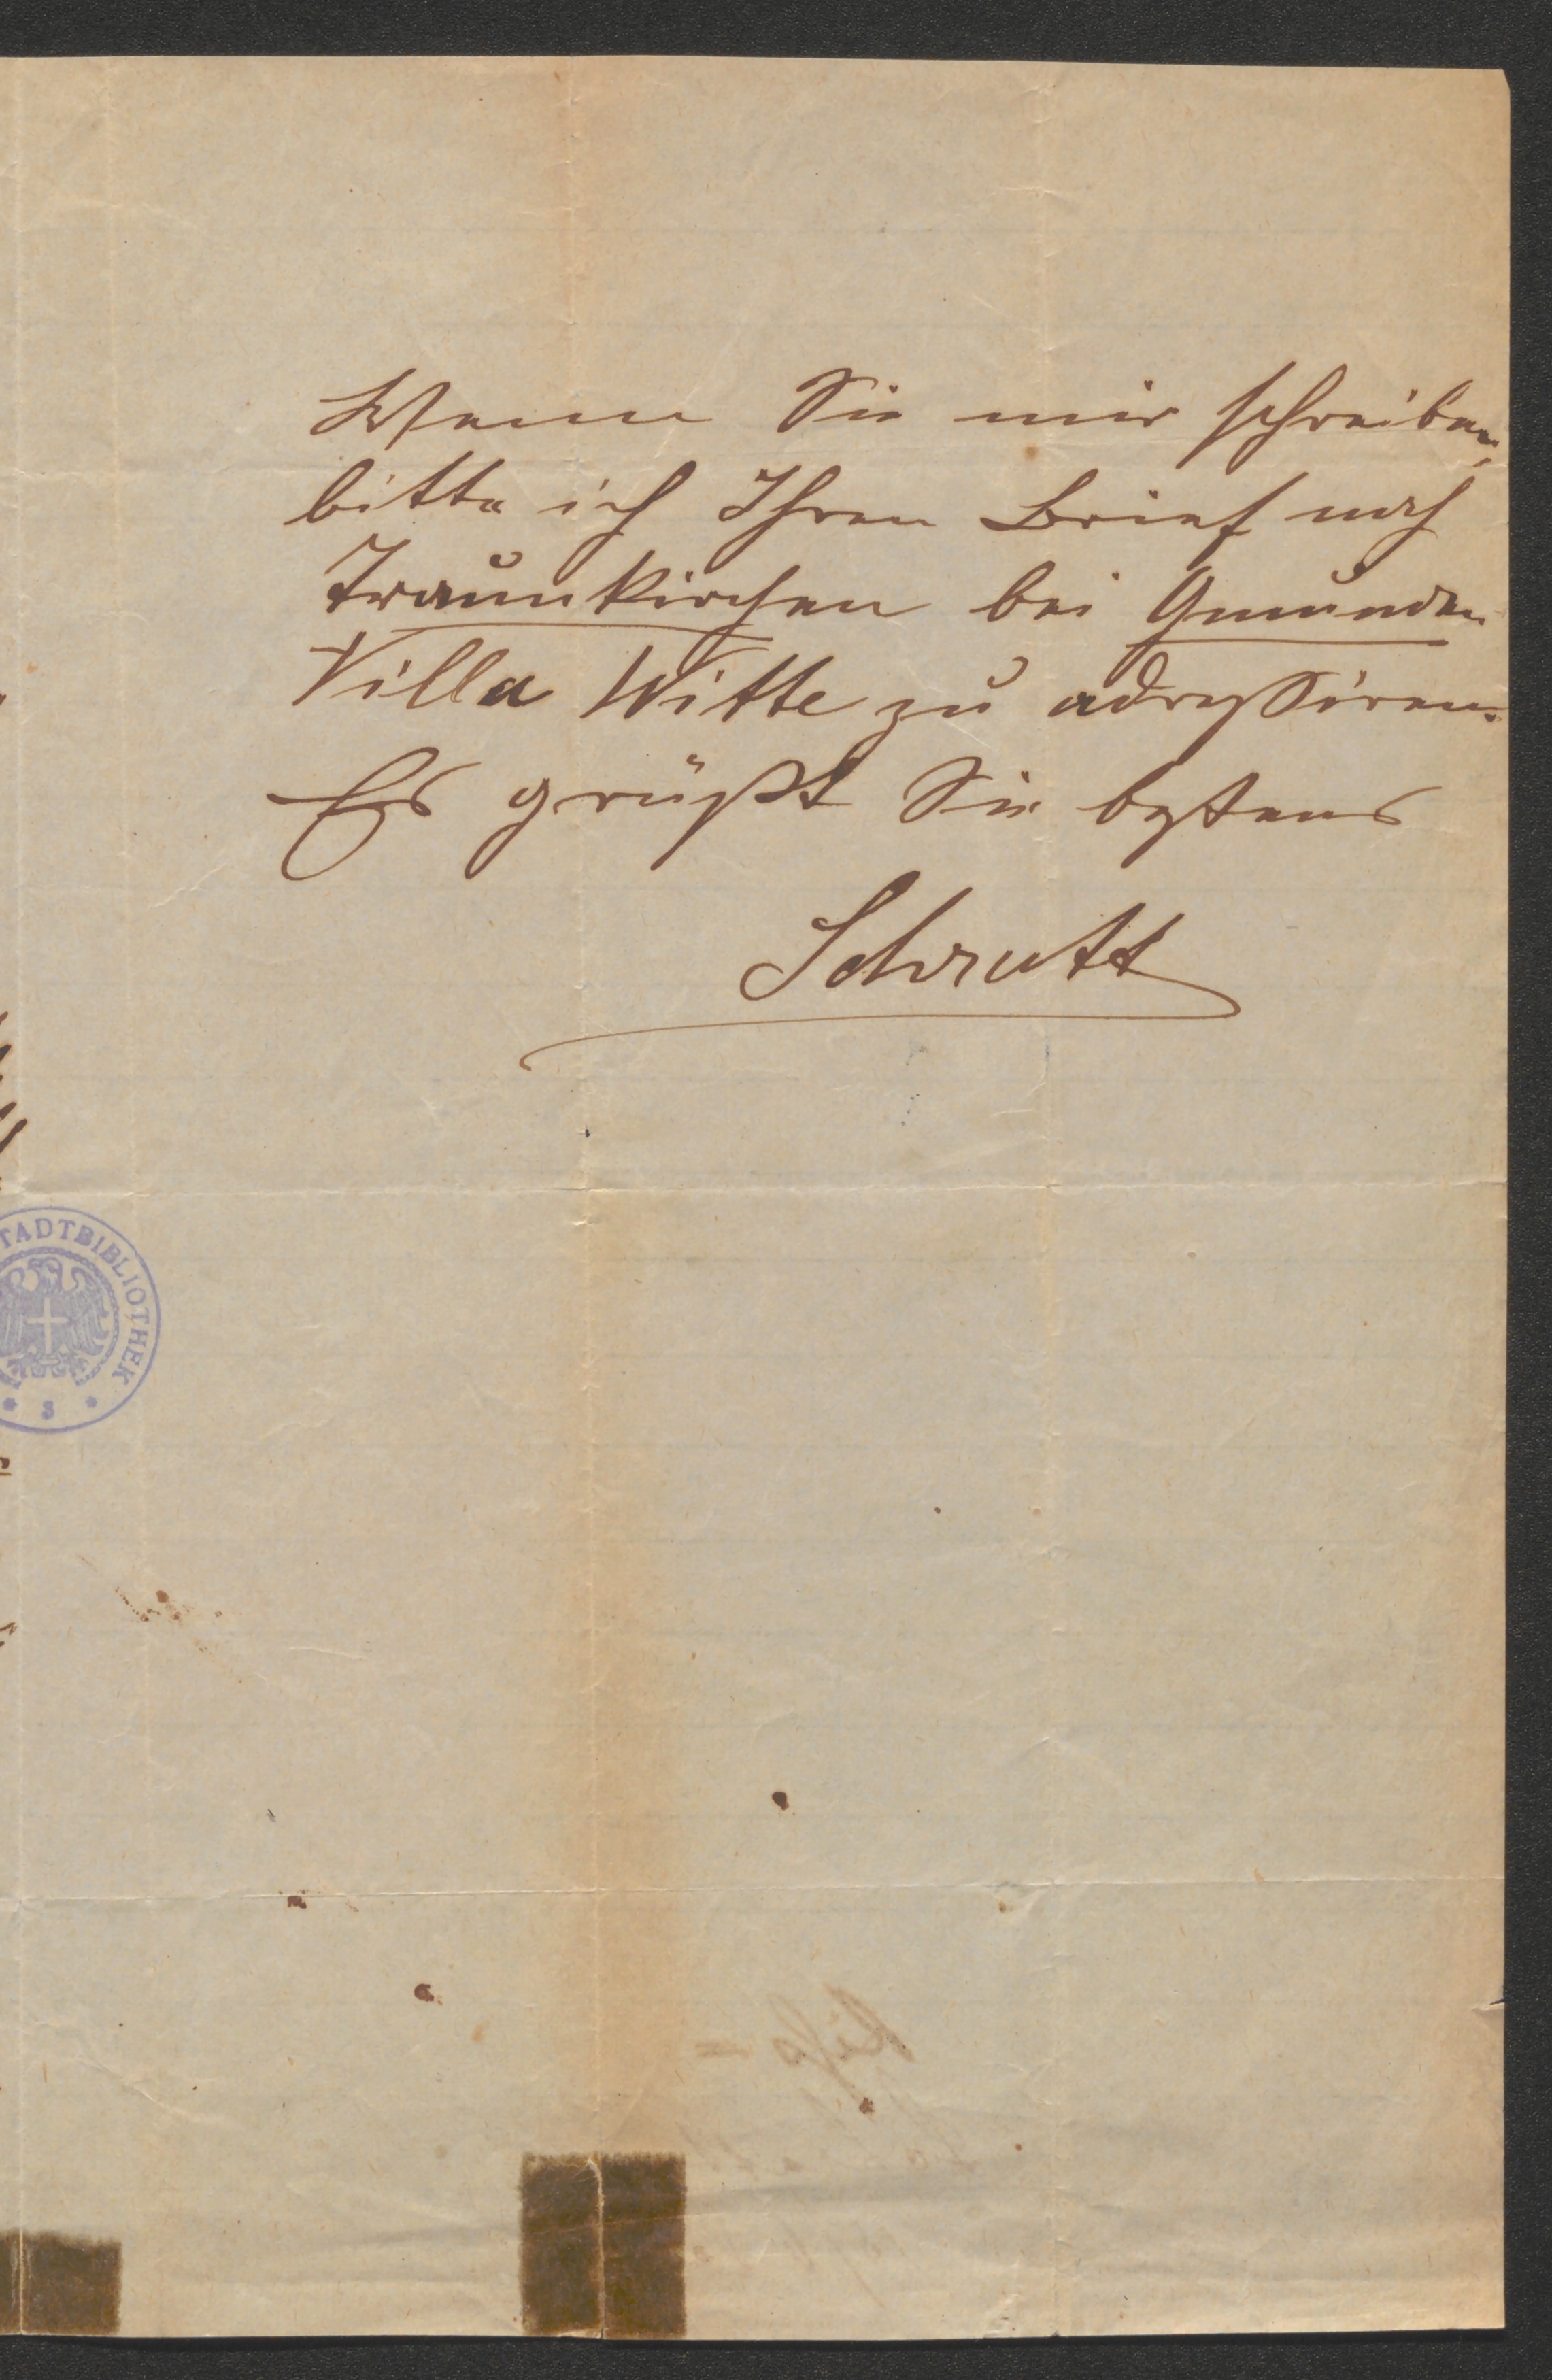 Wenn Sie mir schreiben,
bitte ich Ihren Brief nach
Traunkirchen bei Gmunden
Villa Witte zu adressiren.
Es grüßt Sie bestens
Schrutt
TADTBIBLIOTHEK